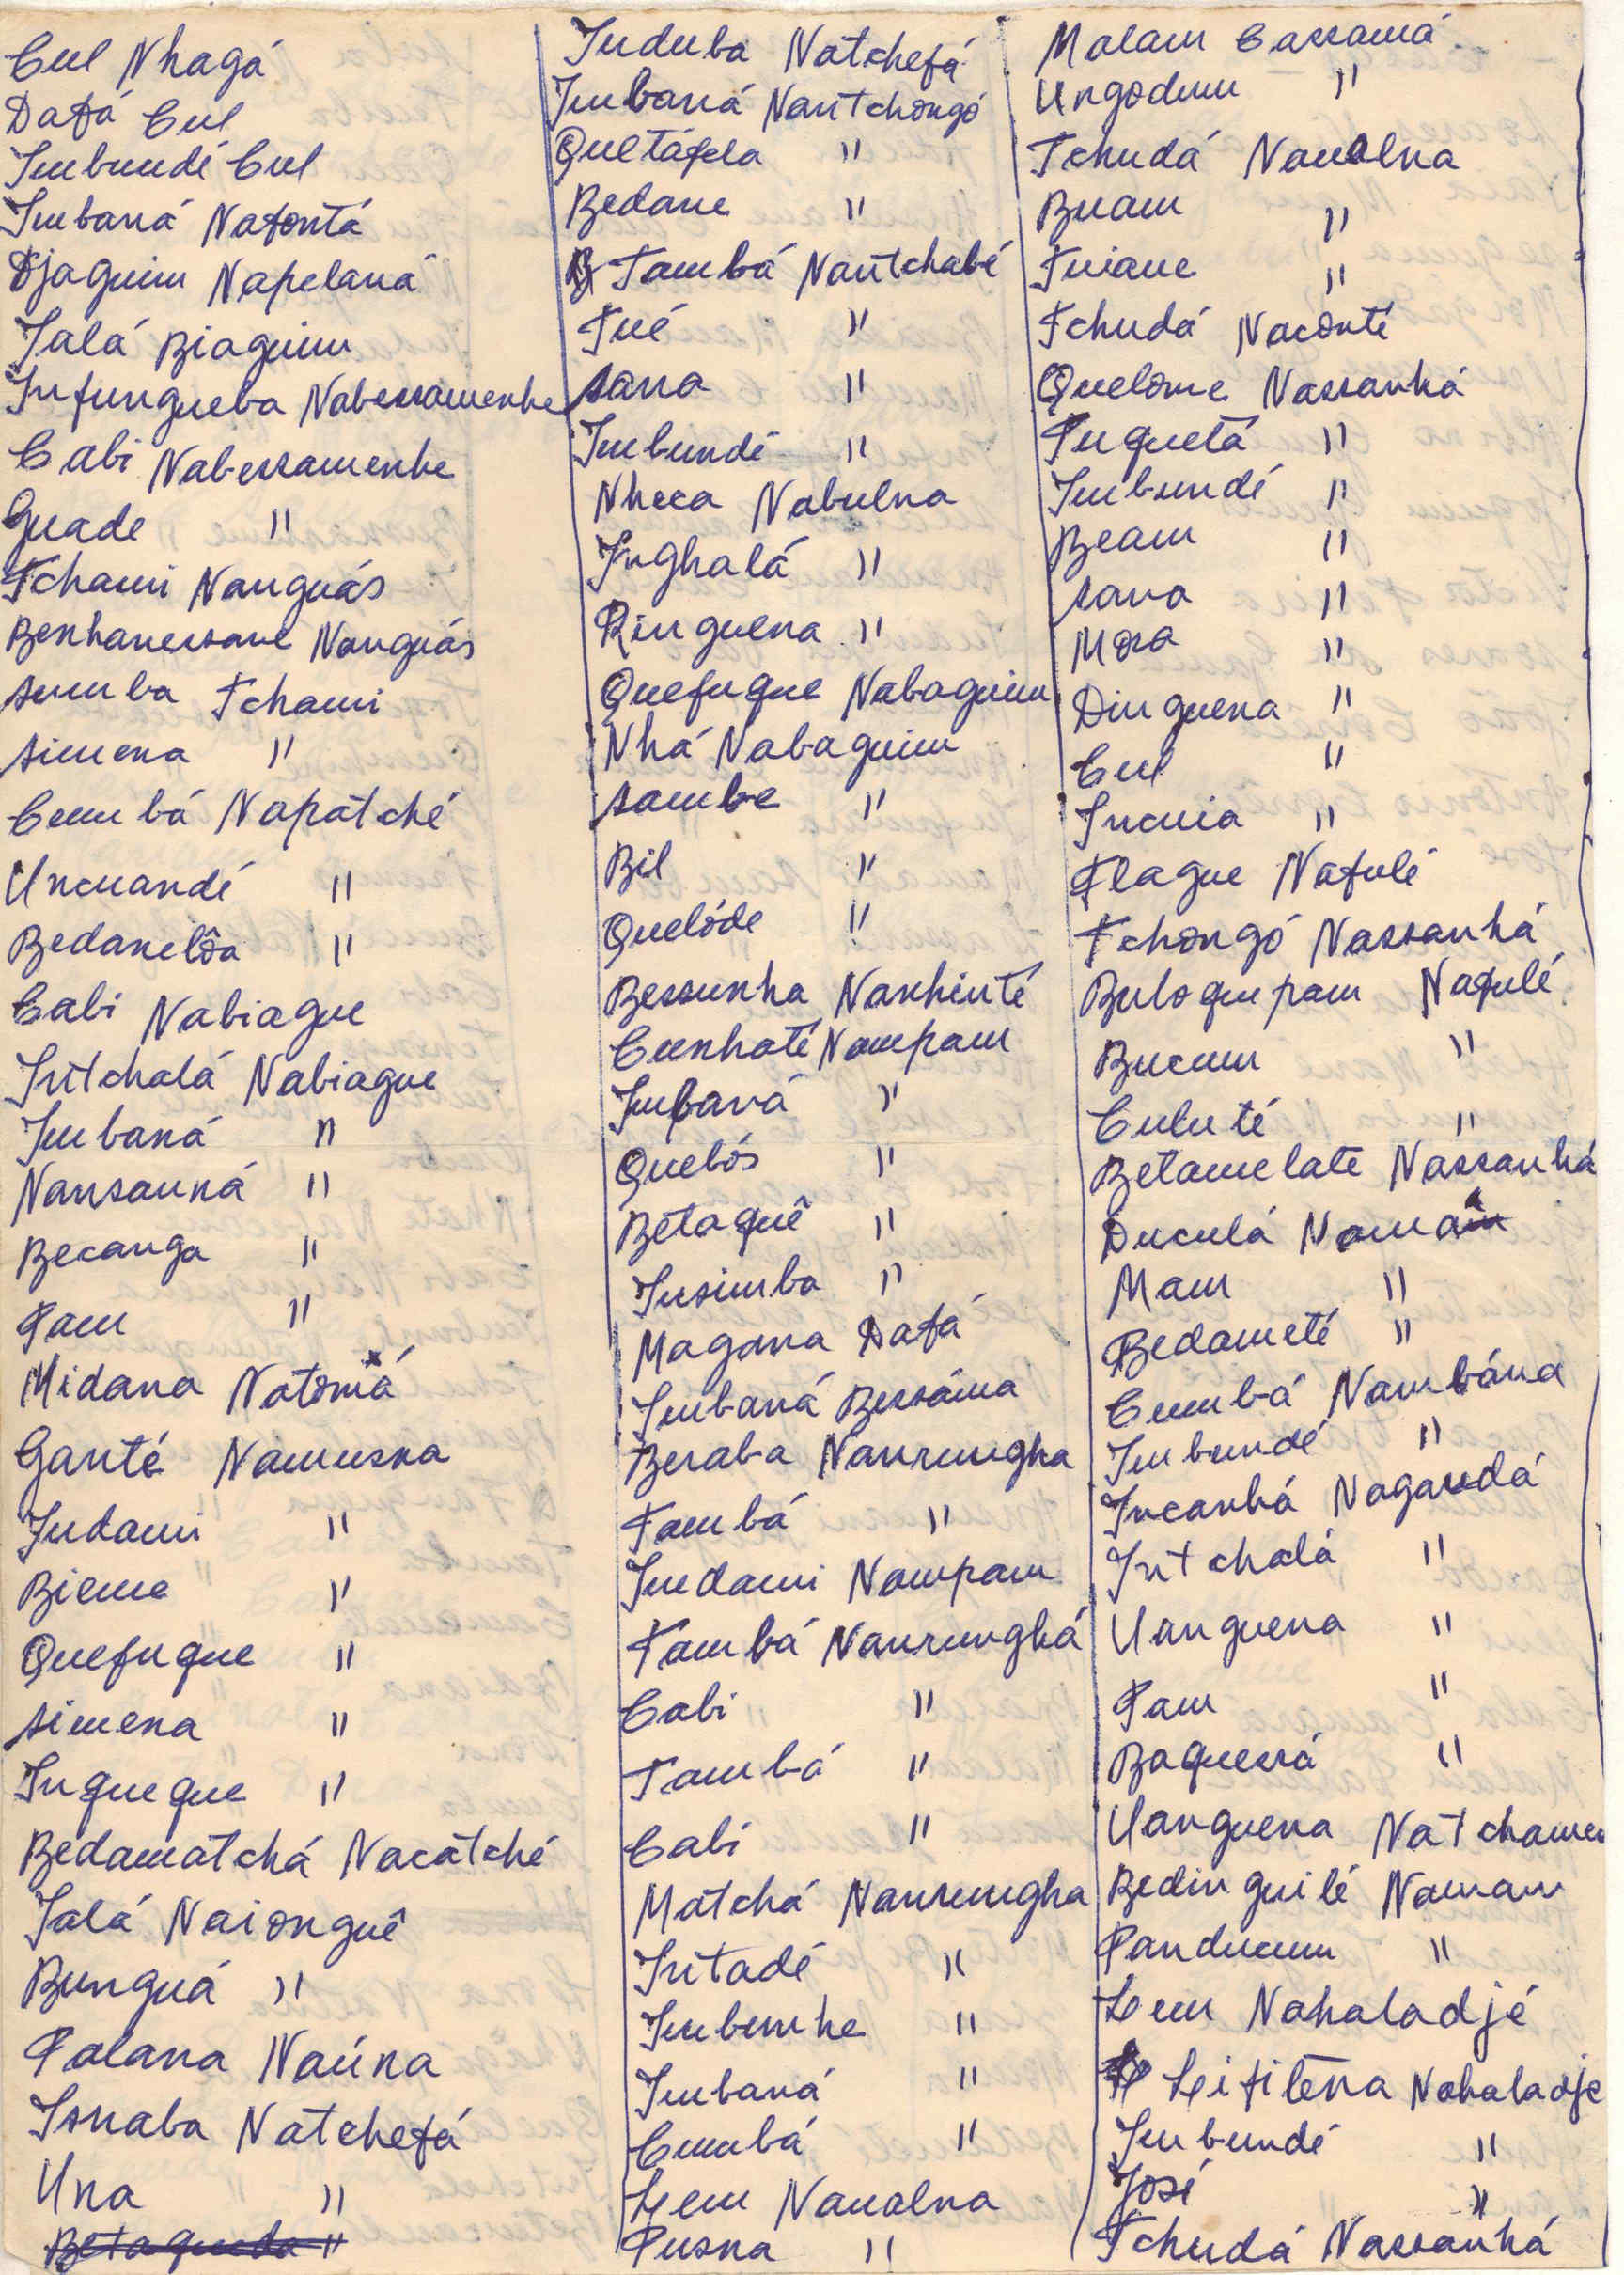 Cul Nhagá
Dafá Cul
Imbundé Cul
Imbaná Nafontá
Djaguim Napelaná
Ialá Biaguim
Infungueba Nabessamenhe
Cabi Nabessamenhe
Guade "
Tchami Nanguás
Benhanessane Nanguás
Sumba Tchami
Simena "
Cumbá Napatché
Uncuandé "
Bedanelôa "
Cabi Nabiague
Intchalá Nabiague
Imbaná "
Nansauná "
Becanga "
Pam "
Midana Natomá
Ganté Namusna
Indami "
Bieme "
Quefuque "
Simena "
Inqueque "
Bedamatchá Nacatché
Ialá Naionguê
Bunguá "
Palana Naúna
Isnaba Natchefá
Una "
Betaqueda "
Induba Natchefá
Imbaná Nantchongó
Quetáfela "
Bedane "
Tambá Nantchabé
Tué "
Sana "
Imbundé "
Nheca Nabulna
Inghalá "
Ringuena "
Quefuque Nabaguim
Nhá Nabaguim
Sambe "
Bil "
Quelóde "
Bessunha Nanhinté
Cunhaté Nampam
Imbaná "
Quebós "
Betaquê "
Insimba "
Magana Dafá
Imbaná Bessáma
Beraba Nanrungha
Tambá "
Imdami Nampam
Tambá Nanrunghá
Cabi "
Tambá "
Cabi "
Matchá Nanrungha
Intadé "
Imbunhe "
Imbaná "
Cumbá "
Lem Naualna
Pusna "
Malam Cassamá
Ungodum "
Tchudá Naualna
Buam "
Tuiane "
Tchudá Naconté
Quelome Nassanhá
Puquetá "
Imbundé "
Beam "
Sana "
Mora "
Dinguena "
Cul "
Incuia "
Flague Nafulé
Tchongó Nassanhá
Buloqupam Nafulé
Bucum "
Culuté "
Betamelate Nassanhá
Duculá Namã
Mam "
Bedameté "
Cumbá Nambána
Imbundé "
Incanhá Nagandá
Intchalá "
Uanguena "
Pam "
Baquessá "
Uanguena Natchamen
Bedinguilé Namam
Panducum "
Lem Nahaladjé
Leifitena Nahaladje
Imbundé "
José "
Tchudá Nassanhá